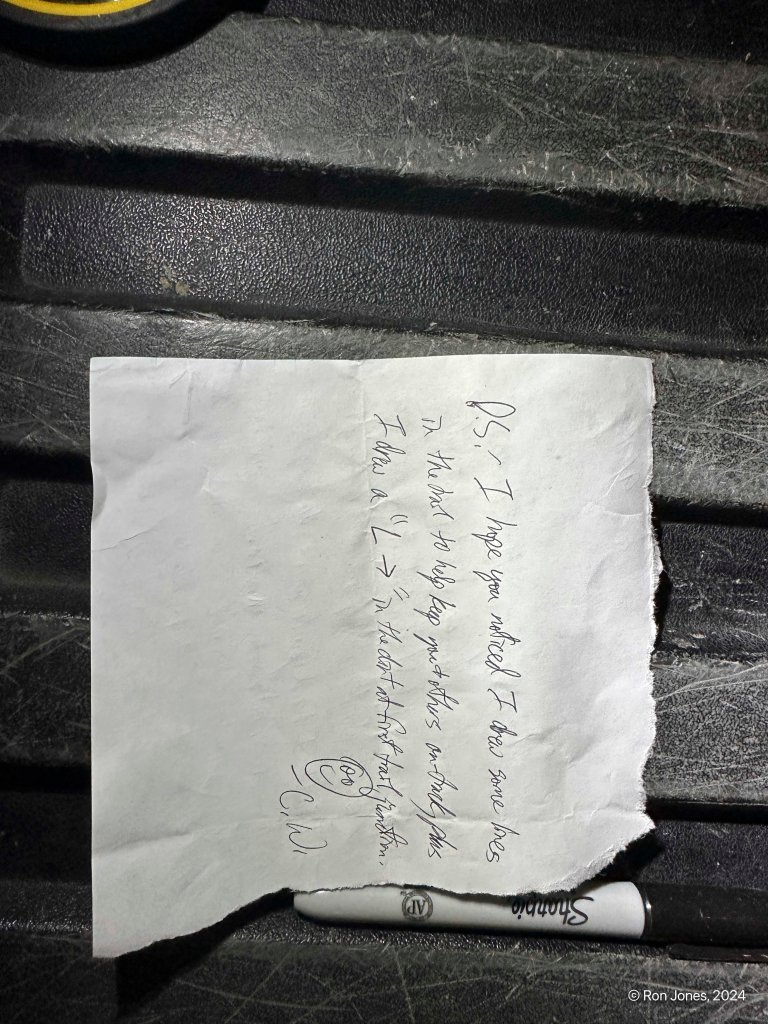 P.S. - I hope you noticed I drew some lines
in the dirt to help keep you + others on-track plus
I drew a "L →" in the dirt at first trail junction.
- C.W.
Sharpie
AP
© Ron Jones, 2024